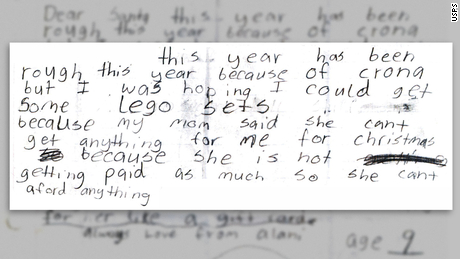 Dear Santa this year has been
rough this year because of crona
this year has been
rough this year because of crona
but I was hoping I could get
Some Lego sets
because my mom said she cant
get anything for me for christmas
because she is not
getting paid as much so she cant
aford anything
for her like a gift card.
always Love from alani
age 9
USPS